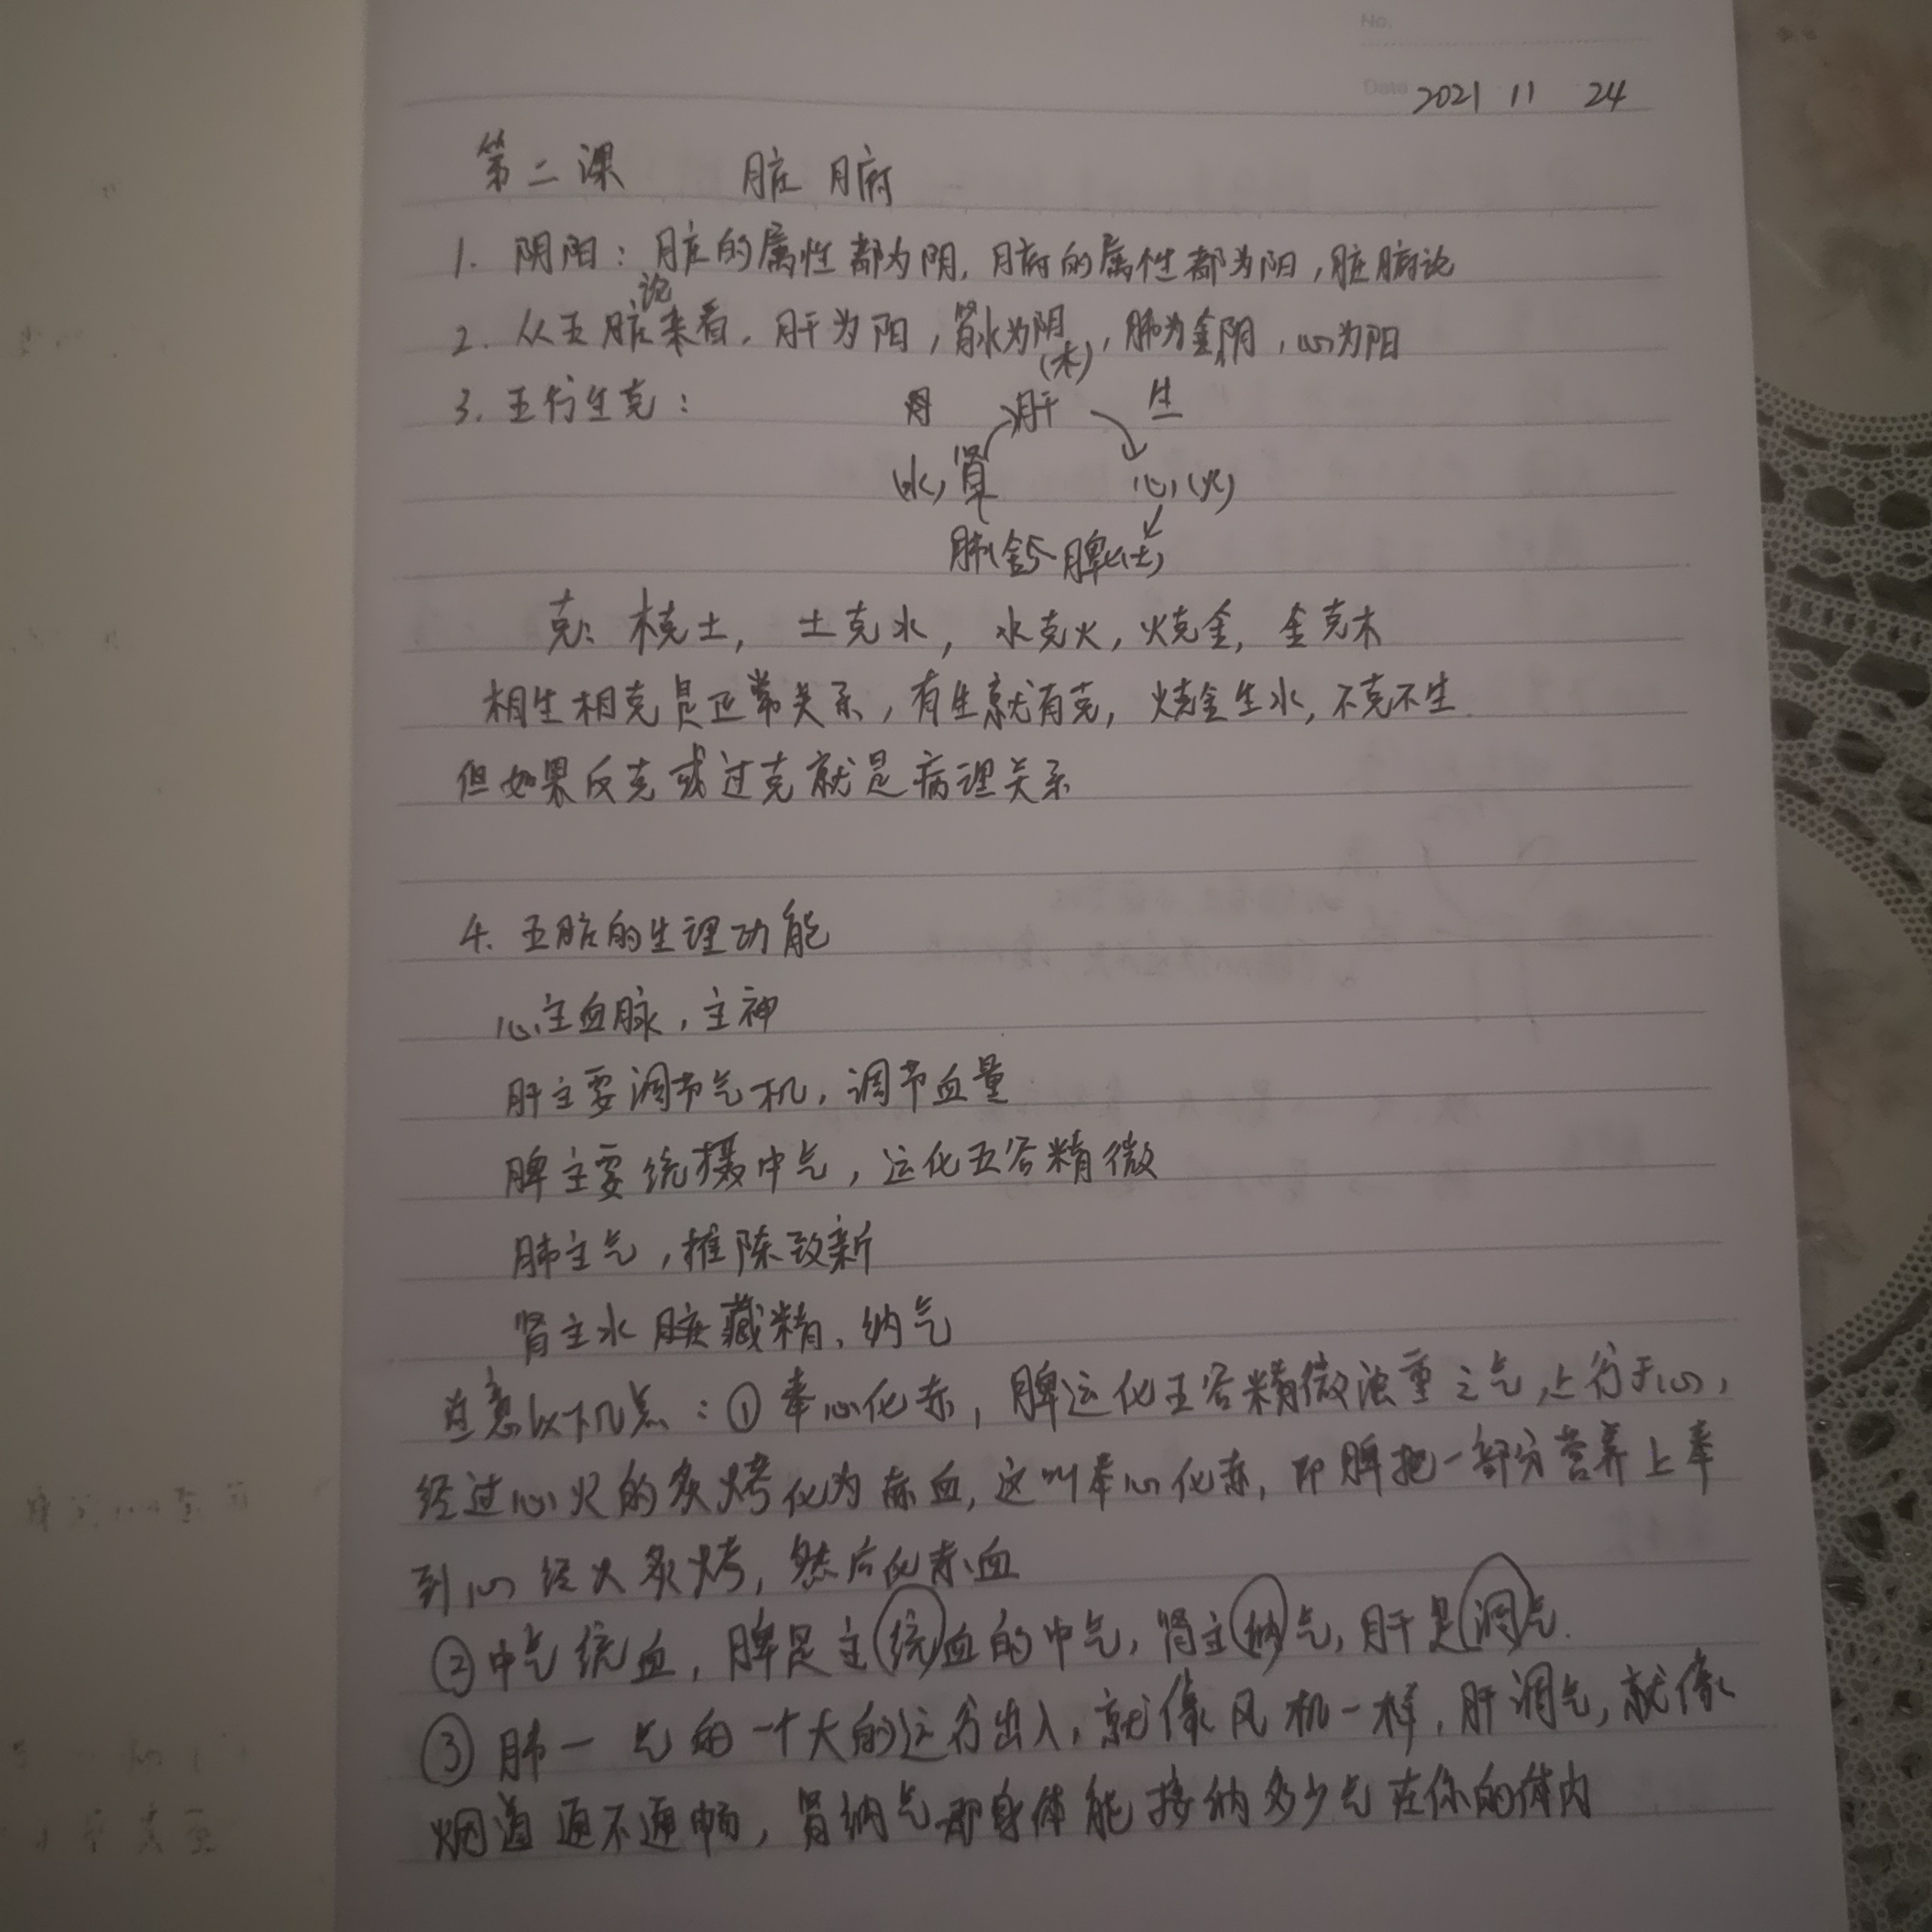 No.
Date 2021 11 24
第二课 脏腑
1. 阴阳：脏的属性都为阴，腑的属性都为阳，脏腑论
论
2. 从五脏来看，肝为阳，肾水为阴，肺为金阴，心为阳
(木)
3. 五行生克： 肝 生
(水)肾 心(火)
肺(金) 脾(土)
克：木克土， 土克水， 水克火，火克金， 金克木
相生相克是正常关系，有生就有克， 火克金生水，不克不生.
但如果反克或过克就是病理关系
4. 五脏的生理功能
心主血脉，主神
肝主要调节气机，调节血量
脾主要统摄中气，运化五谷精微
肺主气，推陈致新
肾主水 脏藏精、纳气
注意以下几点：①奉心化赤，脾运化五谷精微浊重之气，上行于心，
经过心火的炙烤化为赤血，这叫奉心化赤，即脾把一部分营养上奉
到心经火炙烤，然后化赤血
②中气统血，脾是主统血的中气，肾主纳气，肝是调气.
③肺一气的一个大的运行出入，就像风机一样，肝调气，就像
烟道通不通畅，肾纳气即身体能接纳多少气在你的体内